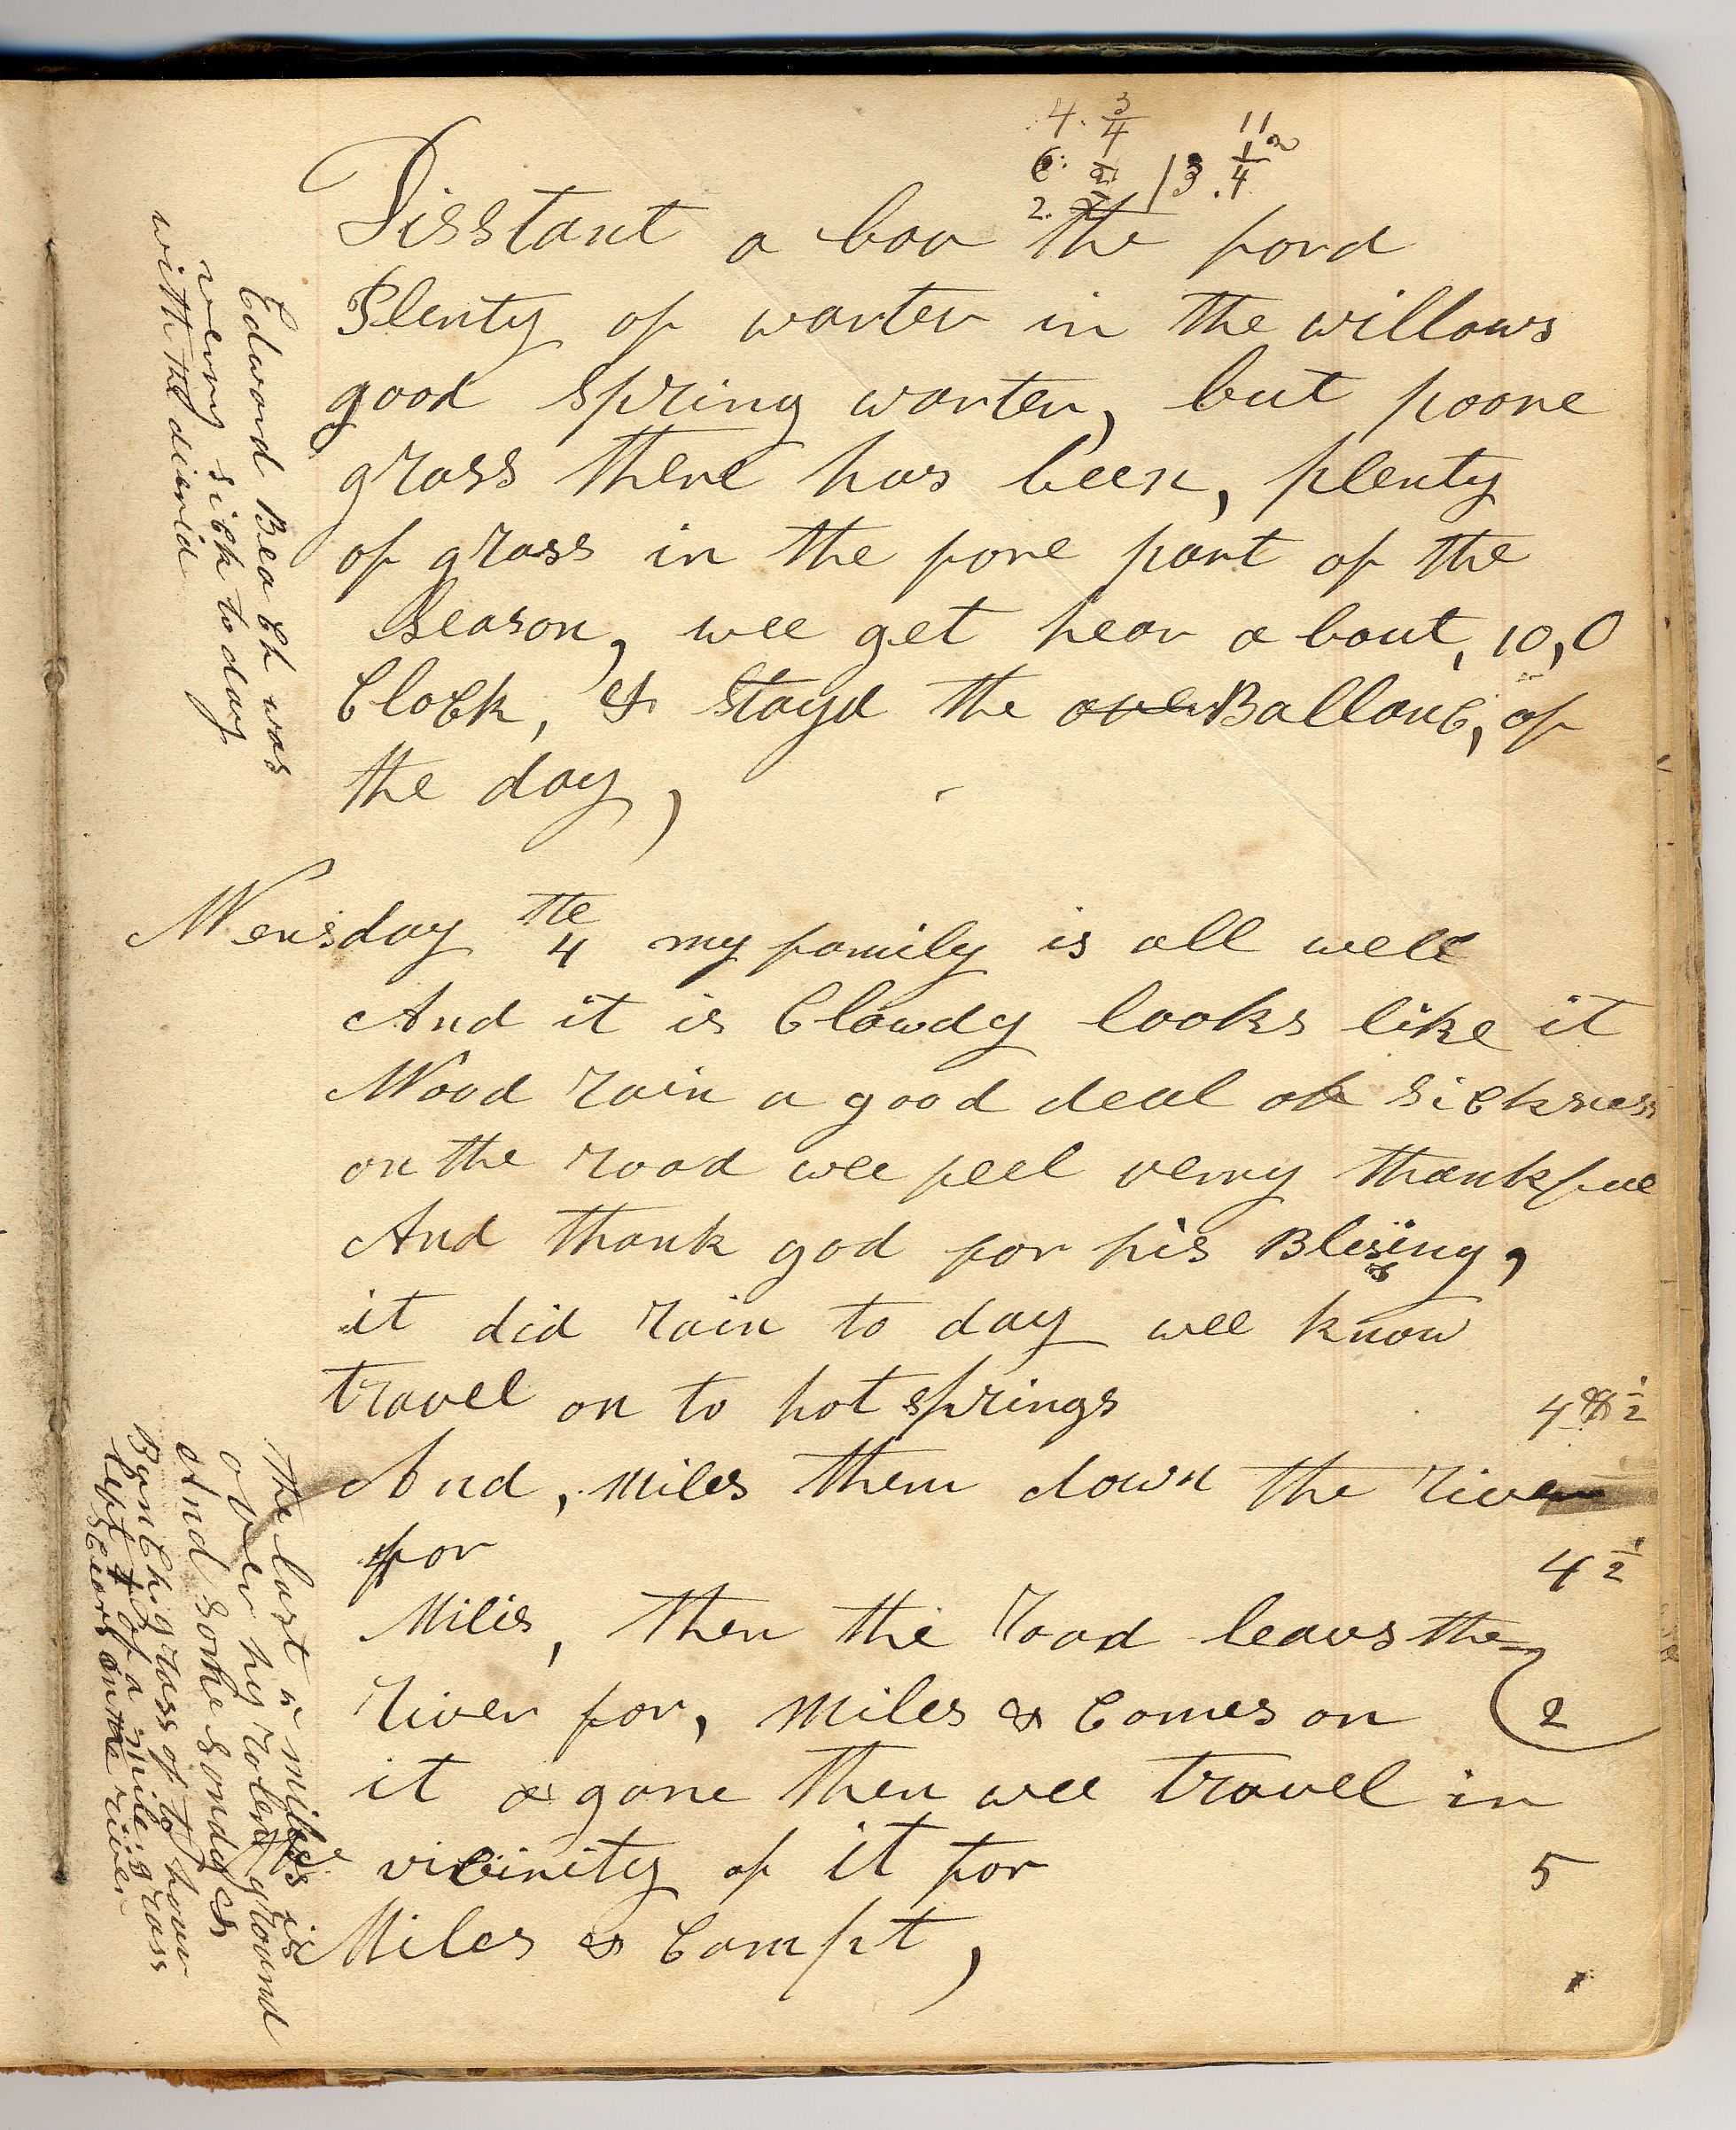 4. 3/4
6.
2.
13. 1/4
11
2
Disstant a bov the ford
Plenty of warter in the willows
good spring warter, but poore
grass there has been, plenty
of grass in the fore part of the
Season, wee get hear a bout, 10, O
Clock, & stayd the over Ballanc, of
the day,
Edward Beach was
verry sick to day
with the
Wensday the 4 my family is all well
And it is Clowdy looks like it
Wood rain a good deal of sickness
on the road wee feel verry thankful
And thank god for his Blessing,
it did rain to day wee know
travel on to hot springs 4 1/2
And, Miles them down the river
for 4 1/2
Miles, then the road leavs the
river for, Miles & Comes on 2
it a gane then wee travel in
the vicinity of it for 5
Miles & Campt,
The last 2 miles is
over hy rolen ground
And some Sondges
Bunch grass of to hour
left of a mile grass
on the river